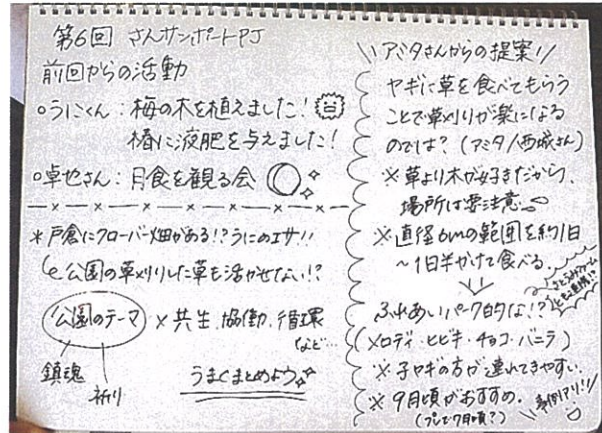 第6回 さんサンポートPJ
前回からの活動
○うにくん:梅の木を植えました!
椿に液肥を与えました!
○卓也さん:月食を観る会
*戸倉にクローバー畑がある!?うにのエサ!!
公園の草刈りした草を活かせない!?
公園のテーマ × 共生、協働、循環
など…
鎮魂
祈り
うまくまとめよう
\\アミタさんからの提案//
ヤギに草を食べてもらう
ことで草刈りが楽になる
のでは?(アミタ/西城さん)
※草より木が好きだから、
場所は要注意
※直径6mの範囲を約1日
~1日半かけて食べる
さとうみファーム
ふれあいパーク的な!?
(メロディ・ヒビキ・チョコ・バニラ)
※子ヤギの方が連れてきやすい。
※9月頃がおすすめ。
(プレで7月頃?)
事例アリ!!